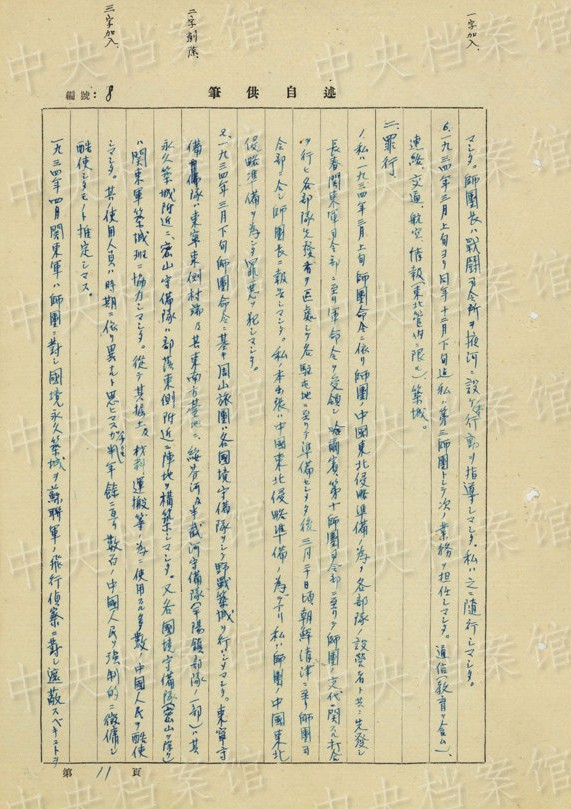 一字加入
二字削除
三字加入
編號：8
述自供筆
マシタ。師團長ハ戰闘司令所ヲ掖河ニ設ケ行動ヲ指導シマシタ。私ハ之ニ隨行シマシタ。
6、一九三四年三月上旬ヨリ同年十二月下旬迄私ハ第三師團トシテ次ノ業務ヲ担任シマシタ。通信(教育ヲ含ム)、
連絡、交通、航空、情報(東北管內ニ限ル)、築城。
二、罪行。
1、私ハ一九三四年三月上旬師團命令ニ依リ師團ノ中國東北侵略準備ノ為メ各部隊ノ設營者ト共ニ先發シ
長春関東軍司令部ニ至リ軍命令ヲ受領シ哈爾賓第十師團司令部ニ至リ師團ノ交代ニ関スル打合
ヲ行ヒ各部隊先發者ヲ區處シ各駐屯地ニ至リテ準備セシメタ後三月二十日頃朝鮮清津ニ至リ師團司
令部ニ合シ師團長ニ報告シマシタ。私ノ本出張ハ中國東北侵略準備ノ為デアリ私ハ師團ノ中國東北
侵略準備ヲ為シタ罪悪ヲ犯シマシタ。
2、一九三四年三月下旬師團命令ニ基キ周山旅團ハ各國境守備隊ヲシテ野戰築城ヲ行ハシマシタ。東寧守
備隊ハ東寧東側村端及其東南方高地ニ、綏芬河及半截河守備隊(平陽鎮部隊ノ一部)ハ其
永久築城附近ニ、密山守備隊ハ部落東側附近ニ陣地ヲ構築シマシタ。又各國境守備隊(密山ヲ除ク)
ハ関東軍築城班ニ協力シマシタ。從テ其掘土及材料運搬等ノ為ニ使用スル多數ノ中國人民ヲ酷使
シマシタ。其ノ使用人員ハ時期ニ依リ異ルト思ヒマスガ半年餘ニ亘リ數百ノ中國人民ヲ強制的ニ徴傭シ
酷使シタモノト推定シマス。
一九三四年四月関東軍ハ師團ニ對シ國境永久築城ヲ蘇聯軍ノ飛行偵察ニ對シ遮蔽スベキコトヲ
第11頁
中央档案馆